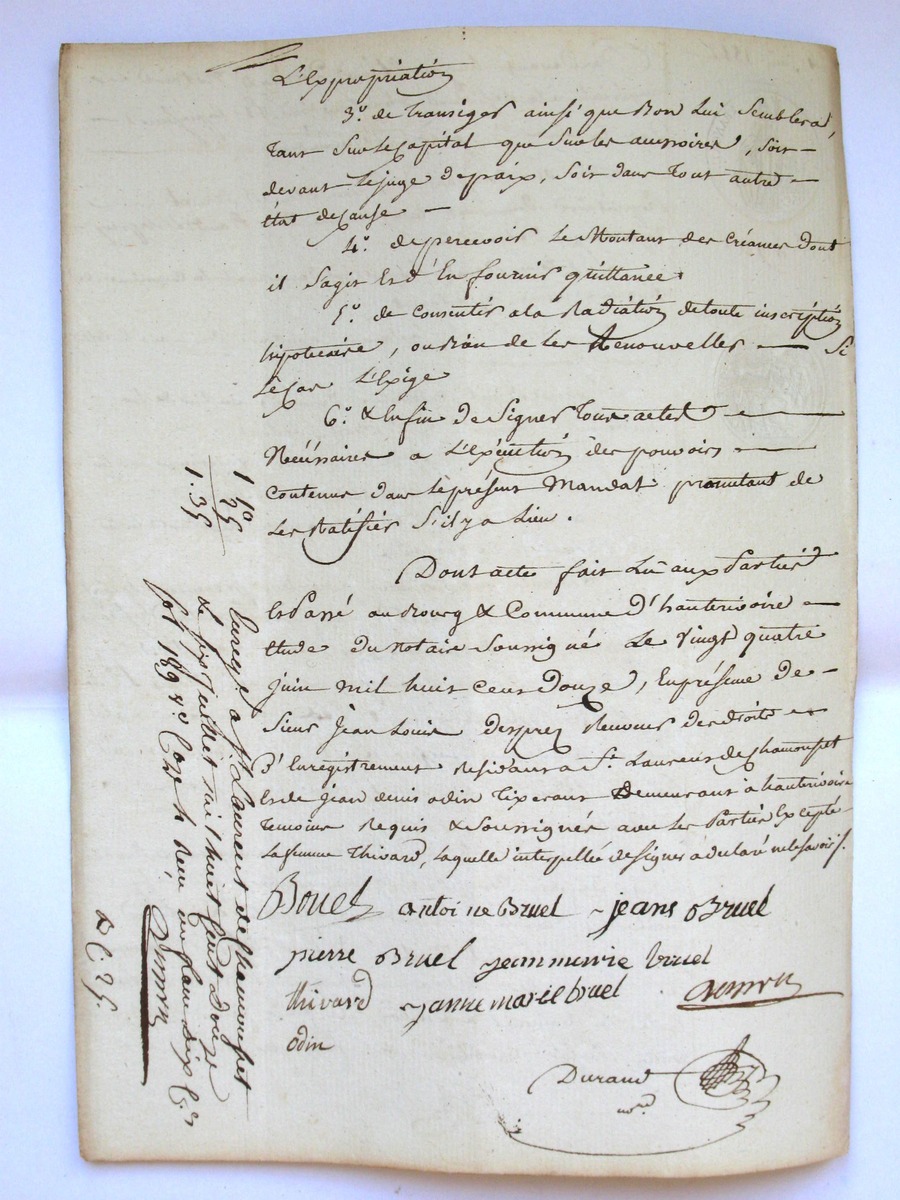 L'Expropriation
3.º de Transiger ainsi que Bon Lui Semblera,
Tant Sur le Capital que Sur les accessoires, Soit
devant le juge de paix, Soit dans Tout autre
état de Cause
4.º de percevoir le Montant des Créances dont
il S'agit Et d'En fournir quittance.
5.º de Consentir a la Radiation de toute inscription
hipotecaire, ou Bien de les Renouveller Si
le Cas L'Exige
6.º & Enfin de Signer Tous actes
Nécéssaires a L'Exécution des pouvoirs
Contenus dans le présent Mandat promettant de
les Ratifier S'il y a Lieu.
Dont acte fait Lu aux Parties
Et Passé au Bourg & Commune D'hauterivoire
étude du Notaire Soussigné Le Vingt quatre
Juin mil huit Cent Douze, En présence de
Sieur Jean Louis Desprez Receveur des droits
D'Enregistrement Residant a St. Laurent de Chamousset
Et de Jean denis odin Tixerant Demeurant à hauterivoire
Temoins Requis & Soussignés avec les Parties Excepté
La femme Thivard, laquelle interpellée de Signer a déclaré ne le Savoir /.
antoine Bruel jeans Bruel
pierre Bruel jeanmerie bruel
thivard janne marie bruel
odin
Durand
nore
1 10
25
1.35
Enregé. a St. Laurent de Chamousset
Le six Juillet mil huit Cent Douze
fol 189 vo. Case